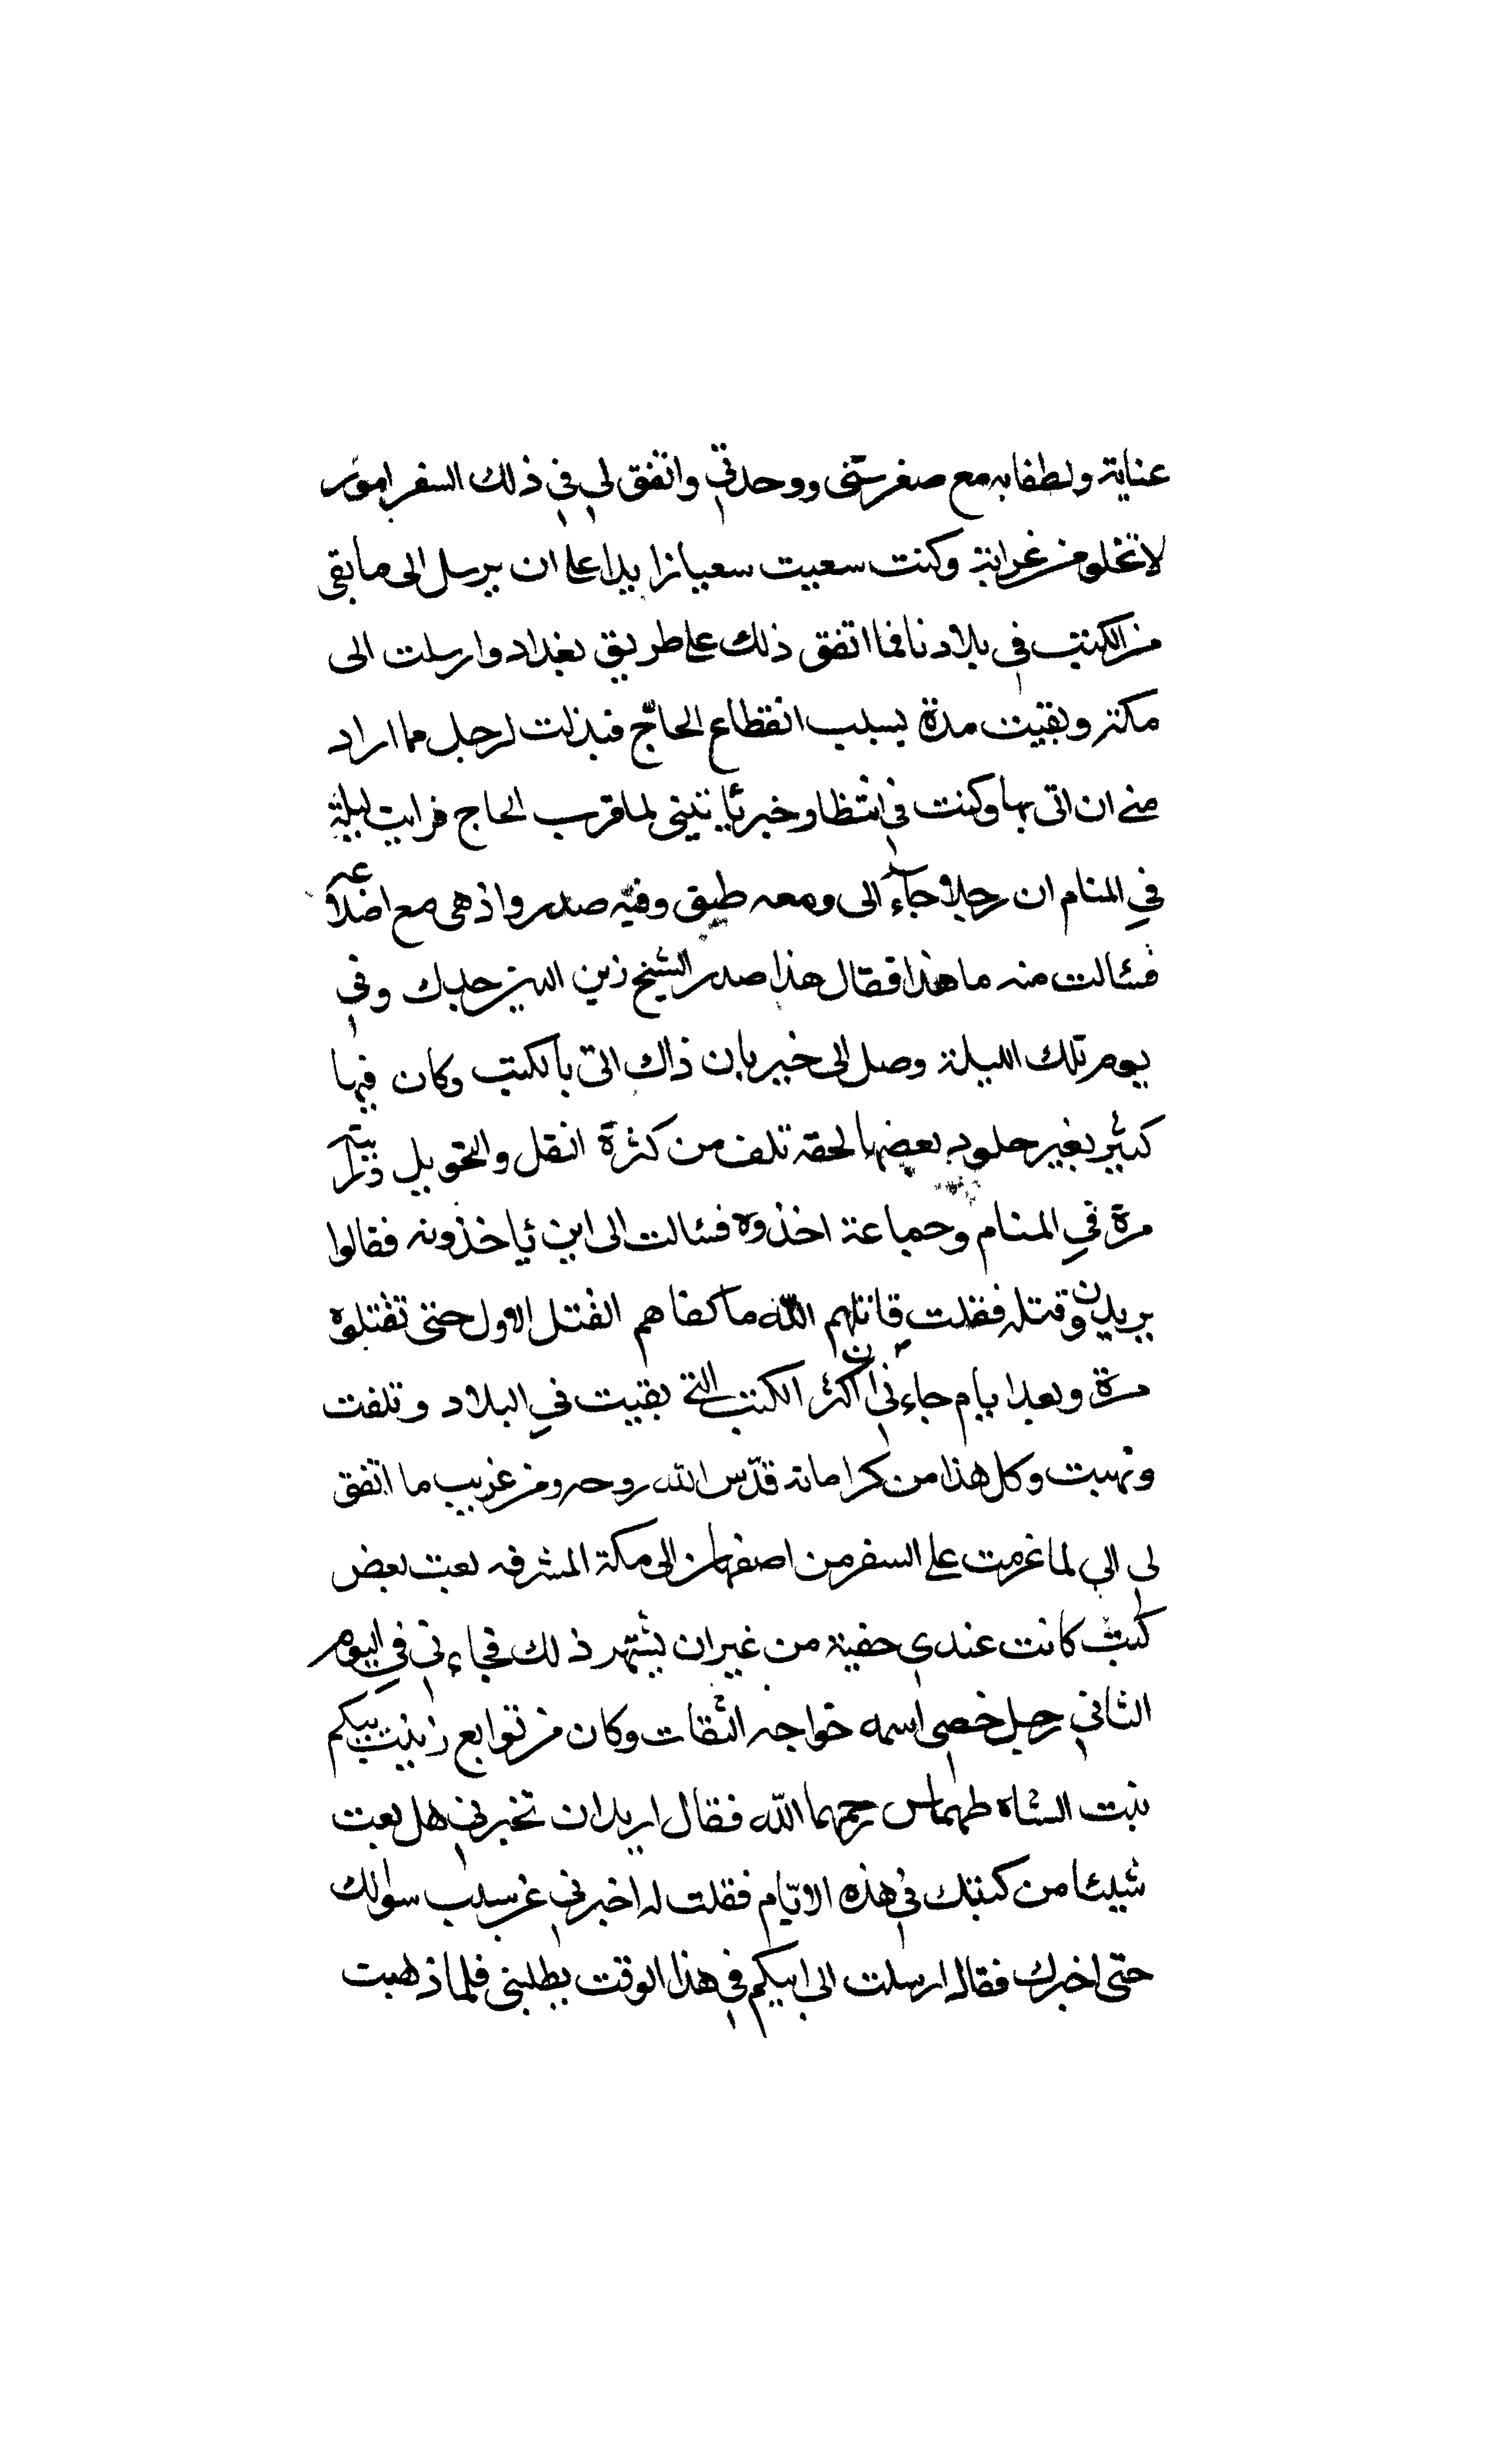 عناية ولطفا به مع صغر سني ووحدتي واتفق لي في ذلك السفر امور
لا تخلو من غرابة وكنت سعيت سعيا زايدا على ان يرسل الى ما بقى
من الكتب في بلادنا فما اتفق ذلك على طريق بغداد وارسلت الى
مكة وبقيت مدة بسبب انقطاع الحاج فبذلت لرجل مما اراد
منے ان اتى بها وكنت في انتظار خبر ياتيني لما قرب الحاج فرايت ليلة
في المنام ان رجلا جاء الى ومعه طبق وفيه صدر واذ هى مع اضلاعه
فسالت منه ما هذا فقال هذا صدر الشيخ زين الدين جدك وفي
يوم تلك الليلة وصل الى خبر بان ذاك اتى بالكتب وكان فيها
كثير بغير جلود بعضها لحقه تلف من كثرة النقل والتحويل ورايته
مرة في المنام وجماعة اخذوه فسالت الى اين ياخذونه فقالوا
يريدون قتله فقلت قاتلهم الله ما كفاهم القتل الاول حتى تقتلوه
مرة وبعد ايام جاءني ان اكثر الكتب التے بقيت في البلاد وتلفت
ونهبت وكل هذا من كراماته قدّس الله روحه ومن غريب ما اتفق
لى انى لما عزمت على السفر من اصفهان الى مكة المشرفه بعت بعض
كتب كانت عندى خفية من غير ان يشتهر ذلك فجاءني في اليوم
الثاني رجل خصى اسمه خواجه التقات وكان من توابع زينب بيكم
بنت الشاه طهماس رحمهما الله فقال اريد ان تخبرني هل بعت
شيئا من كتبك في هذه الايّام فقلت له اخبرني عن سبب سوالك
حتى اخبرك فقال ارسلت الى ابيكم في هذا الوقت يطلبنى فلما ذهبت